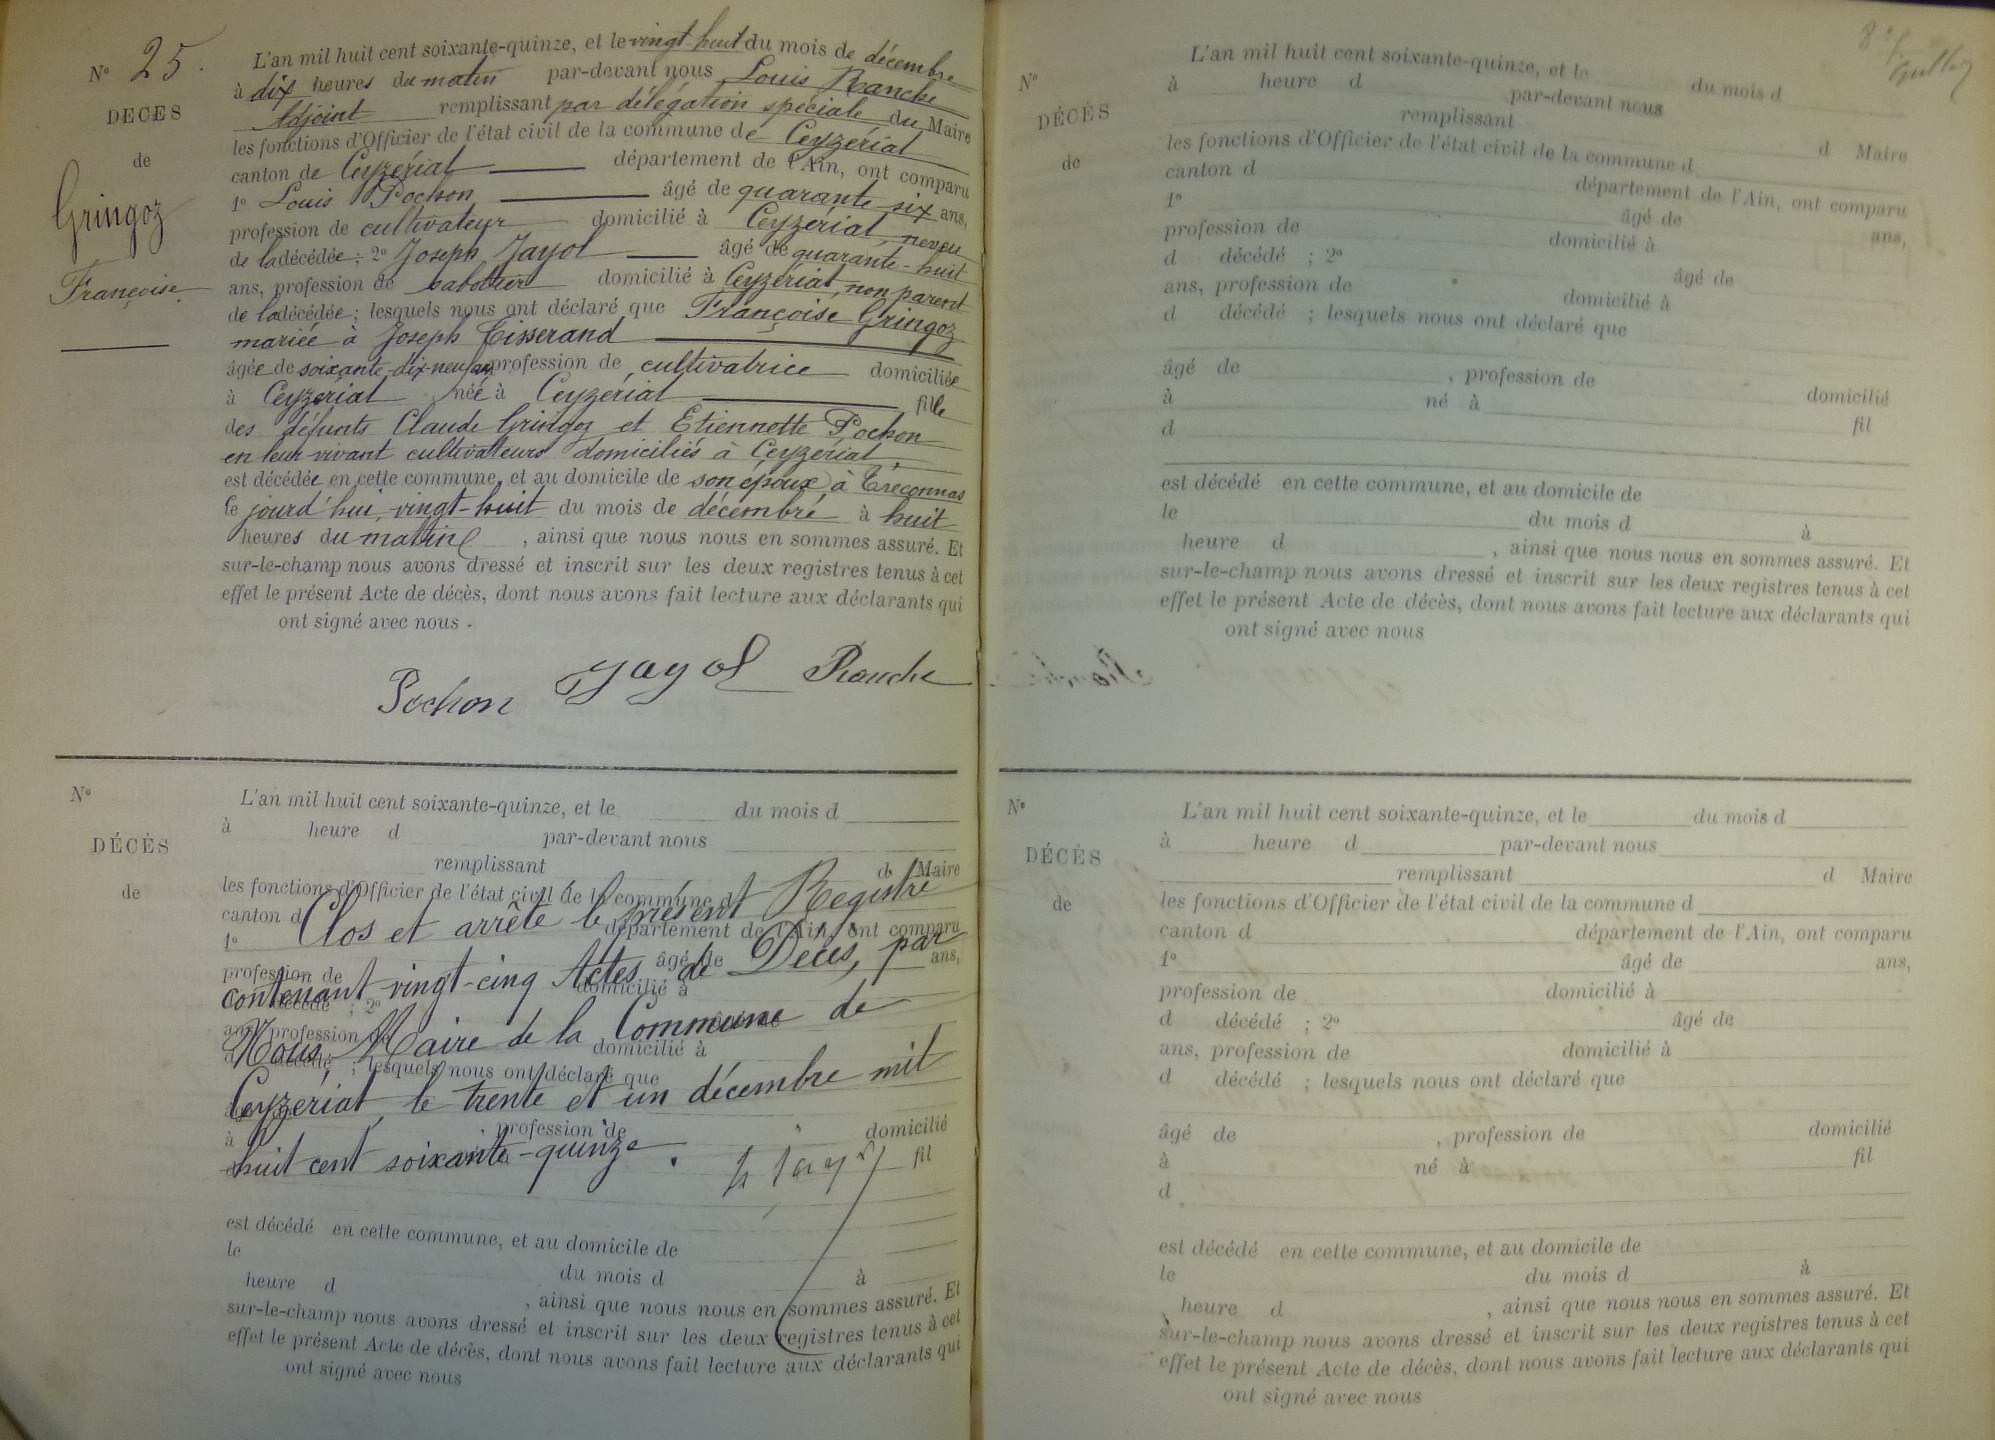 N° 25.
DÉCÈS
de
Gringoz
Françoise
L'an mil huit cent soixante-quinze, et le vingt-huit du mois de décembre
à dix heures du matin par-devant nous Louis Ranche
Adjoint remplissant par délégation spéciale du Maire
les fonctions d'Officier de l'état civil de la commune de Ceyzériat
canton de Ceyzériat département de l'Ain, ont comparu
1° Louis Pochon âgé de quarante-six ans,
profession de cultivateur domicilié à Ceyzériat, neveu
de la décédée ; 2° Joseph Jayol âgé de quarante-huit
ans, profession de sabotier domicilié à Ceyzériat, non parent
de la décédée ; lesquels nous ont déclaré que Françoise Gringoz
mariée à Joseph Tisserand
âgée de soixante-dix-neuf ans profession de cultivatrice domiciliée
à Ceyzériat née à Ceyzériat fille
des défunts Claude Gringoz et Etiennette Pochon
en leur vivant cultivateurs domiciliés à Ceyzériat,
est décédée en cette commune, et au domicile de son époux à Tréconnas
le jourd'hui, vingt-huit du mois de décembre à huit
heures du matin , ainsi que nous nous en sommes assuré. Et
sur-le-champ nous avons dressé et inscrit sur les deux registres tenus à cet
effet le présent Acte de décès, dont nous avons fait lecture aux déclarants qui
ont signé avec nous.
Pochon Jayol Ranche
N°
DÉCÈS
de
L'an mil huit cent soixante-quinze, et le du mois d
à heure d par-devant nous
remplissant d Maire
les fonctions d'Officier de l'état civil de la commune d
canton d département de l'Ain, ont comparu
1° âgé de ans,
profession de domicilié à
d décédé ; 2° âgé de
ans, profession de domicilié à
d décédé ; lesquels nous ont déclaré que
âgé de , profession de domicilié
à né à fil
d
Clos et arrêté le présent Registre
contenant vingt-cinq Actes de Décès, par
Nous, Maire de la Commune de
Ceyzériat, le trente et un décembre mil
huit cent soixante-quinze.
est décédé en cette commune, et au domicile de
le du mois d à
heure d , ainsi que nous nous en sommes assuré. Et
sur-le-champ nous avons dressé et inscrit sur les deux registres tenus à cet
effet le présent Acte de décès, dont nous avons fait lecture aux déclarants qui
ont signé avec nous
N°
DÉCÈS
de
L'an mil huit cent soixante-quinze, et le du mois d
à heure d par-devant nous
remplissant d Maire
les fonctions d'Officier de l'état civil de la commune d
canton d département de l'Ain, ont comparu
1° âgé de ans,
profession de domicilié à
d décédé ; 2° âgé de
ans, profession de domicilié à
d décédé ; lesquels nous ont déclaré que
âgé de , profession de domicilié
à né à fil
d
est décédé en cette commune, et au domicile de
le du mois d à
heure d , ainsi que nous nous en sommes assuré. Et
sur-le-champ nous avons dressé et inscrit sur les deux registres tenus à cet
effet le présent Acte de décès, dont nous avons fait lecture aux déclarants qui
ont signé avec nous
N°
DÉCÈS
de
L'an mil huit cent soixante-quinze, et le du mois d
à heure d par-devant nous
remplissant d Maire
les fonctions d'Officier de l'état civil de la commune d
canton d département de l'Ain, ont comparu
1° âgé de ans,
profession de domicilié à
d décédé ; 2° âgé de
ans, profession de domicilié à
d décédé ; lesquels nous ont déclaré que
âgé de , profession de domicilié
à né à fil
d
est décédé en cette commune, et au domicile de
le du mois d à
heure d , ainsi que nous nous en sommes assuré. Et
sur-le-champ nous avons dressé et inscrit sur les deux registres tenus à cet
effet le présent Acte de décès, dont nous avons fait lecture aux déclarants qui
ont signé avec nous